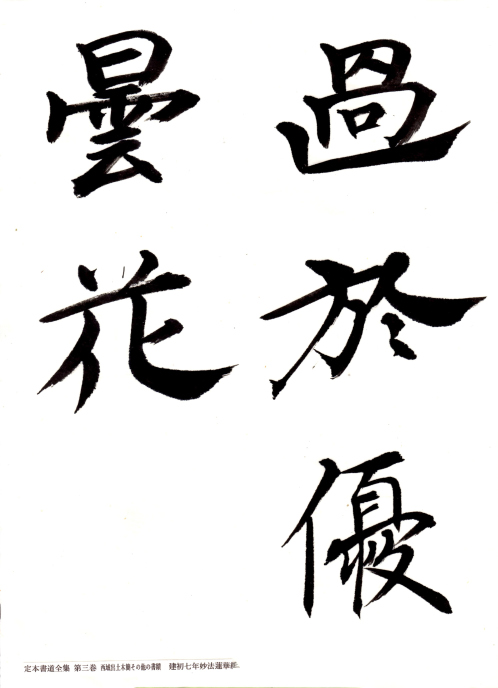 過於優
曇花
定本書道全集 第三巻 西域出土木簡その他の書蹟 建初七年妙法蓮華経